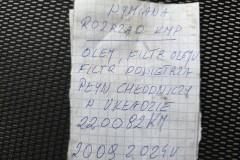 WYMIANA
ROZRZĄD KMP
OLEJ, FILTR OLEJU
FILTR POWIETRZA
PŁYN CHŁODNICZY
W UKŁADZIE
220082 KM
2009 2025